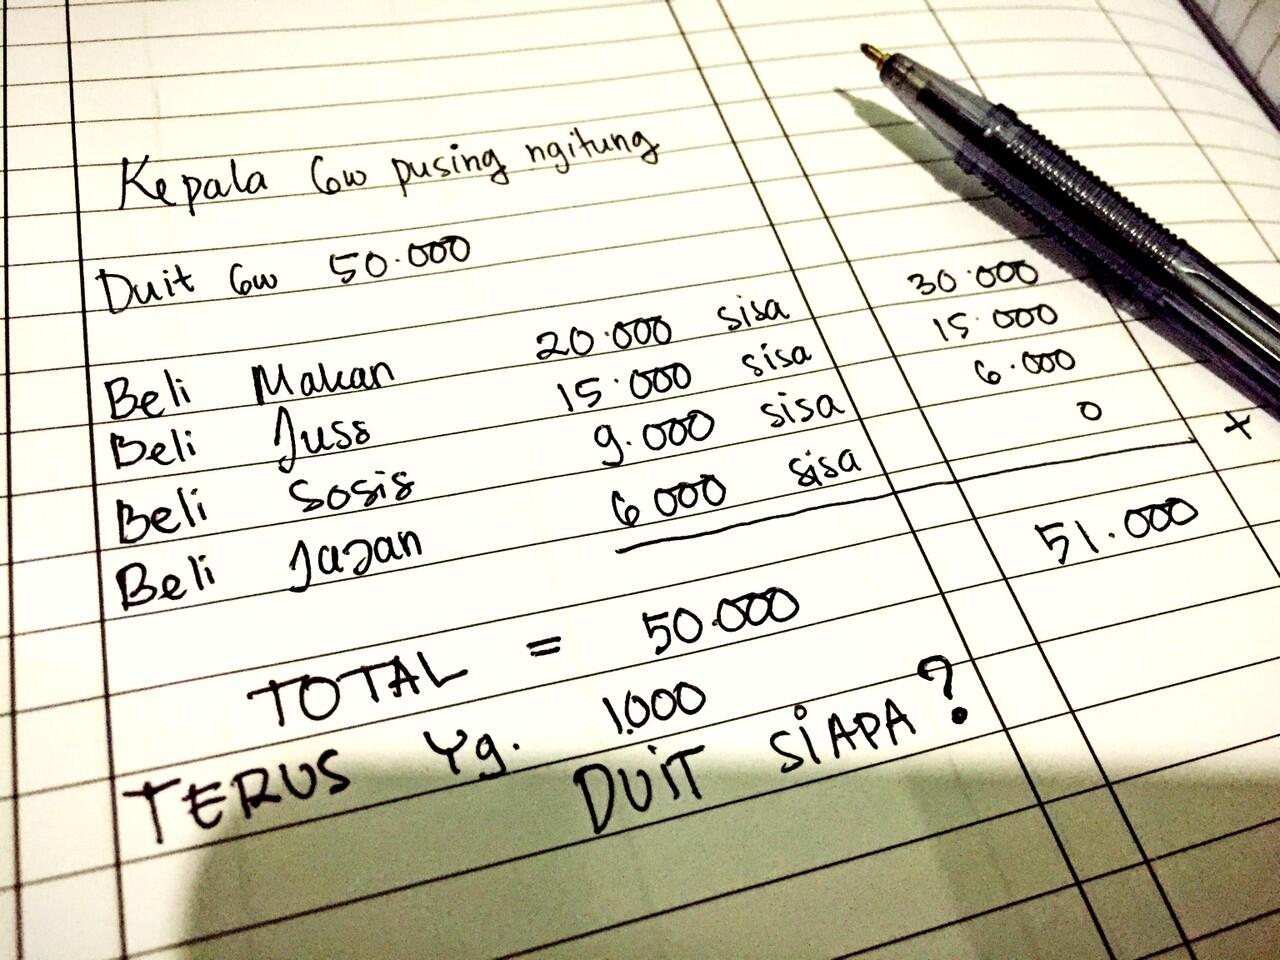 Kepala Gw pusing ngitung
Duit Gw 50.000
Beli Makan 20.000 sisa 30.000
Beli Juss 15.000 sisa 15.000
Beli Sosis 9.000 sisa 6.000
Beli Jajan 6000 sisa 0 +
TOTAL = 50.000 51.000
TERUS Yg. 1.000
DUIT SIAPA?